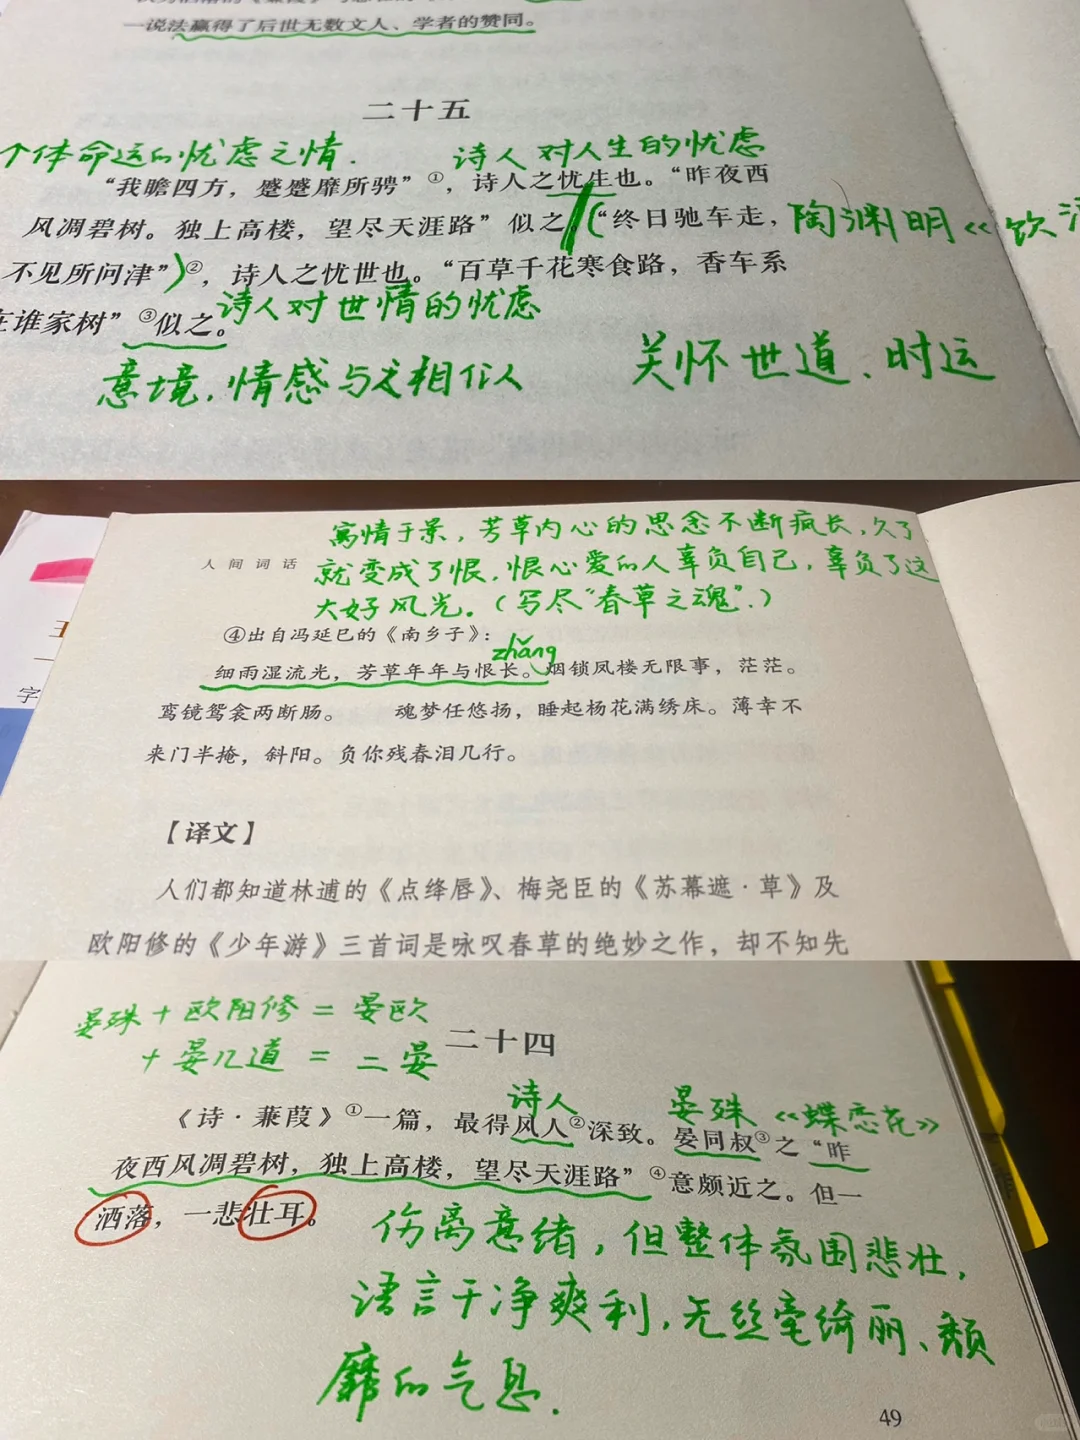 一说法赢得了后世无数文人、学者的赞同。
二十五
个体命运的忧虑之情.  诗人对人生的忧虑
“我瞻四方，蹙蹙靡所骋”①，诗人之忧生也。“昨夜西
风凋碧树。独上高楼，望尽天涯路”似之。“终日驰车走，
陶渊明《饮
不见所问津”②，诗人之忧世也。“百草千花寒食路，香车系
在谁家树”③似之。
诗人对世情的忧虑
意境，情感与之相似
关怀世道、时运
寓情于景，芳草内心的思念不断疯长，久了
人间词话
就变成了恨，恨心爱的人辜负自己，辜负了这
大好风光。（写尽“春草之魂”.）
④出自冯延巳的《南乡子》：
zhǎng
细雨湿流光，芳草年年与恨长。烟锁凤楼无限事，茫茫。
鸾镜鸳衾两断肠。 魂梦任悠扬，睡起杨花满绣床。薄幸不
来门半掩，斜阳。负你残春泪几行。
【译文】
人们都知道林逋的《点绛唇》、梅尧臣的《苏幕遮·草》及
欧阳修的《少年游》三首词是咏叹春草的绝妙之作，却不知先
王
字
晏殊+欧阳修=晏欧
+晏几道=二晏
二十四
诗人  晏殊《蝶恋花》
《诗·蒹葭》①一篇，最得风人②深致。晏同叔③之“昨
夜西风凋碧树，独上高楼，望尽天涯路”④意颇近之。但一
洒落，一悲壮耳。
伤离意绪，但整体氛围悲壮，
语言干净爽利，无丝毫绮丽、颓
靡的气息.
49